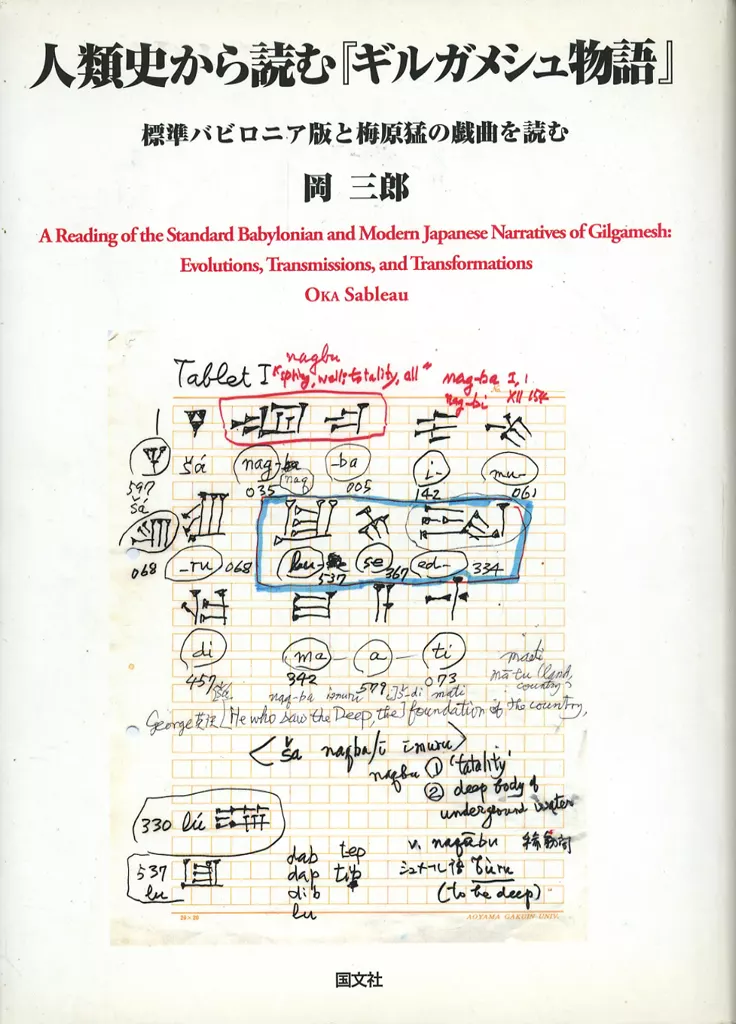 人類史から読む『ギルガメシュ物語』
標準バビロニア版と梅原猛の戯曲を読む
岡 三郎
A Reading of the Standard Babylonian and Modern Japanese Narratives of Gilgamesh:
Evolutions, Transmissions, and Transformations
OKA Sableau
nagbu
Tablet I "spring, well; totality, all"
nag-ba I, 1
nag-bi XII 154
1
šá nag-ba -ba i- mu-
597 035 naq 005 142 061
šá
068 -ru 068 lu- 537 se 367 ed- 334
di ma - a - ti
457 342 579 073
mati
mātu (land, country)
naq-ba išdi mati
George [He who saw the Deep, the] foundation of the country,
<ša naqba/i īmuru>
naqbu ① 'totality'
② deep body of
underground water
330 lú
v. naqābu
537 dab tep シュメール語 būru
lu dap tib (to be deep)
dib
lu
20×20 AOYAMA GAKUIN UNIV.
国文社